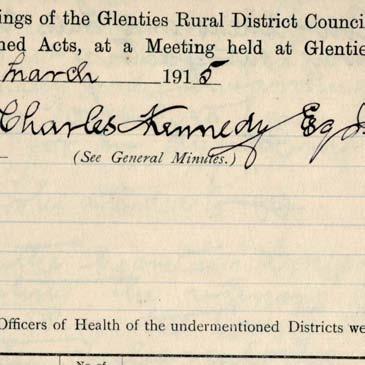 ings of the Glenties Rural District Counci
ned Acts, at a Meeting held at Glentie
March 1915
Charles Kennedy Esq J
(See General Minutes.)
Officers of Health of the undermentioned Districts we
No. of